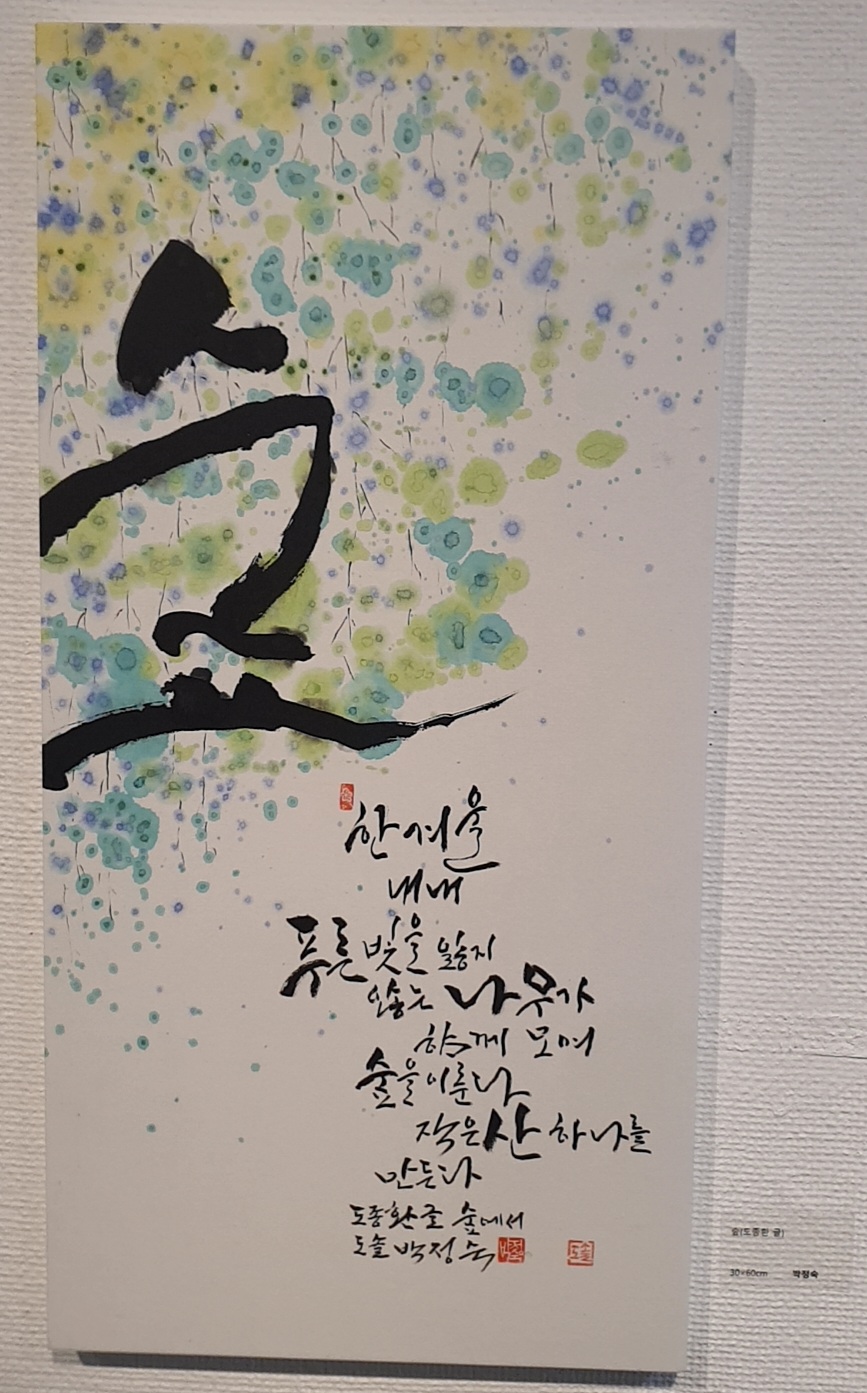 숲
한겨울
내내
푸른 빛을 잃지
않는 나무가
함께 모여
숲을 이룬다
작은 산 하나를
만든다
도종환 글 숲에서
도솔 박정숙
도솔
숲(도종환 글)
30×60cm 박정숙